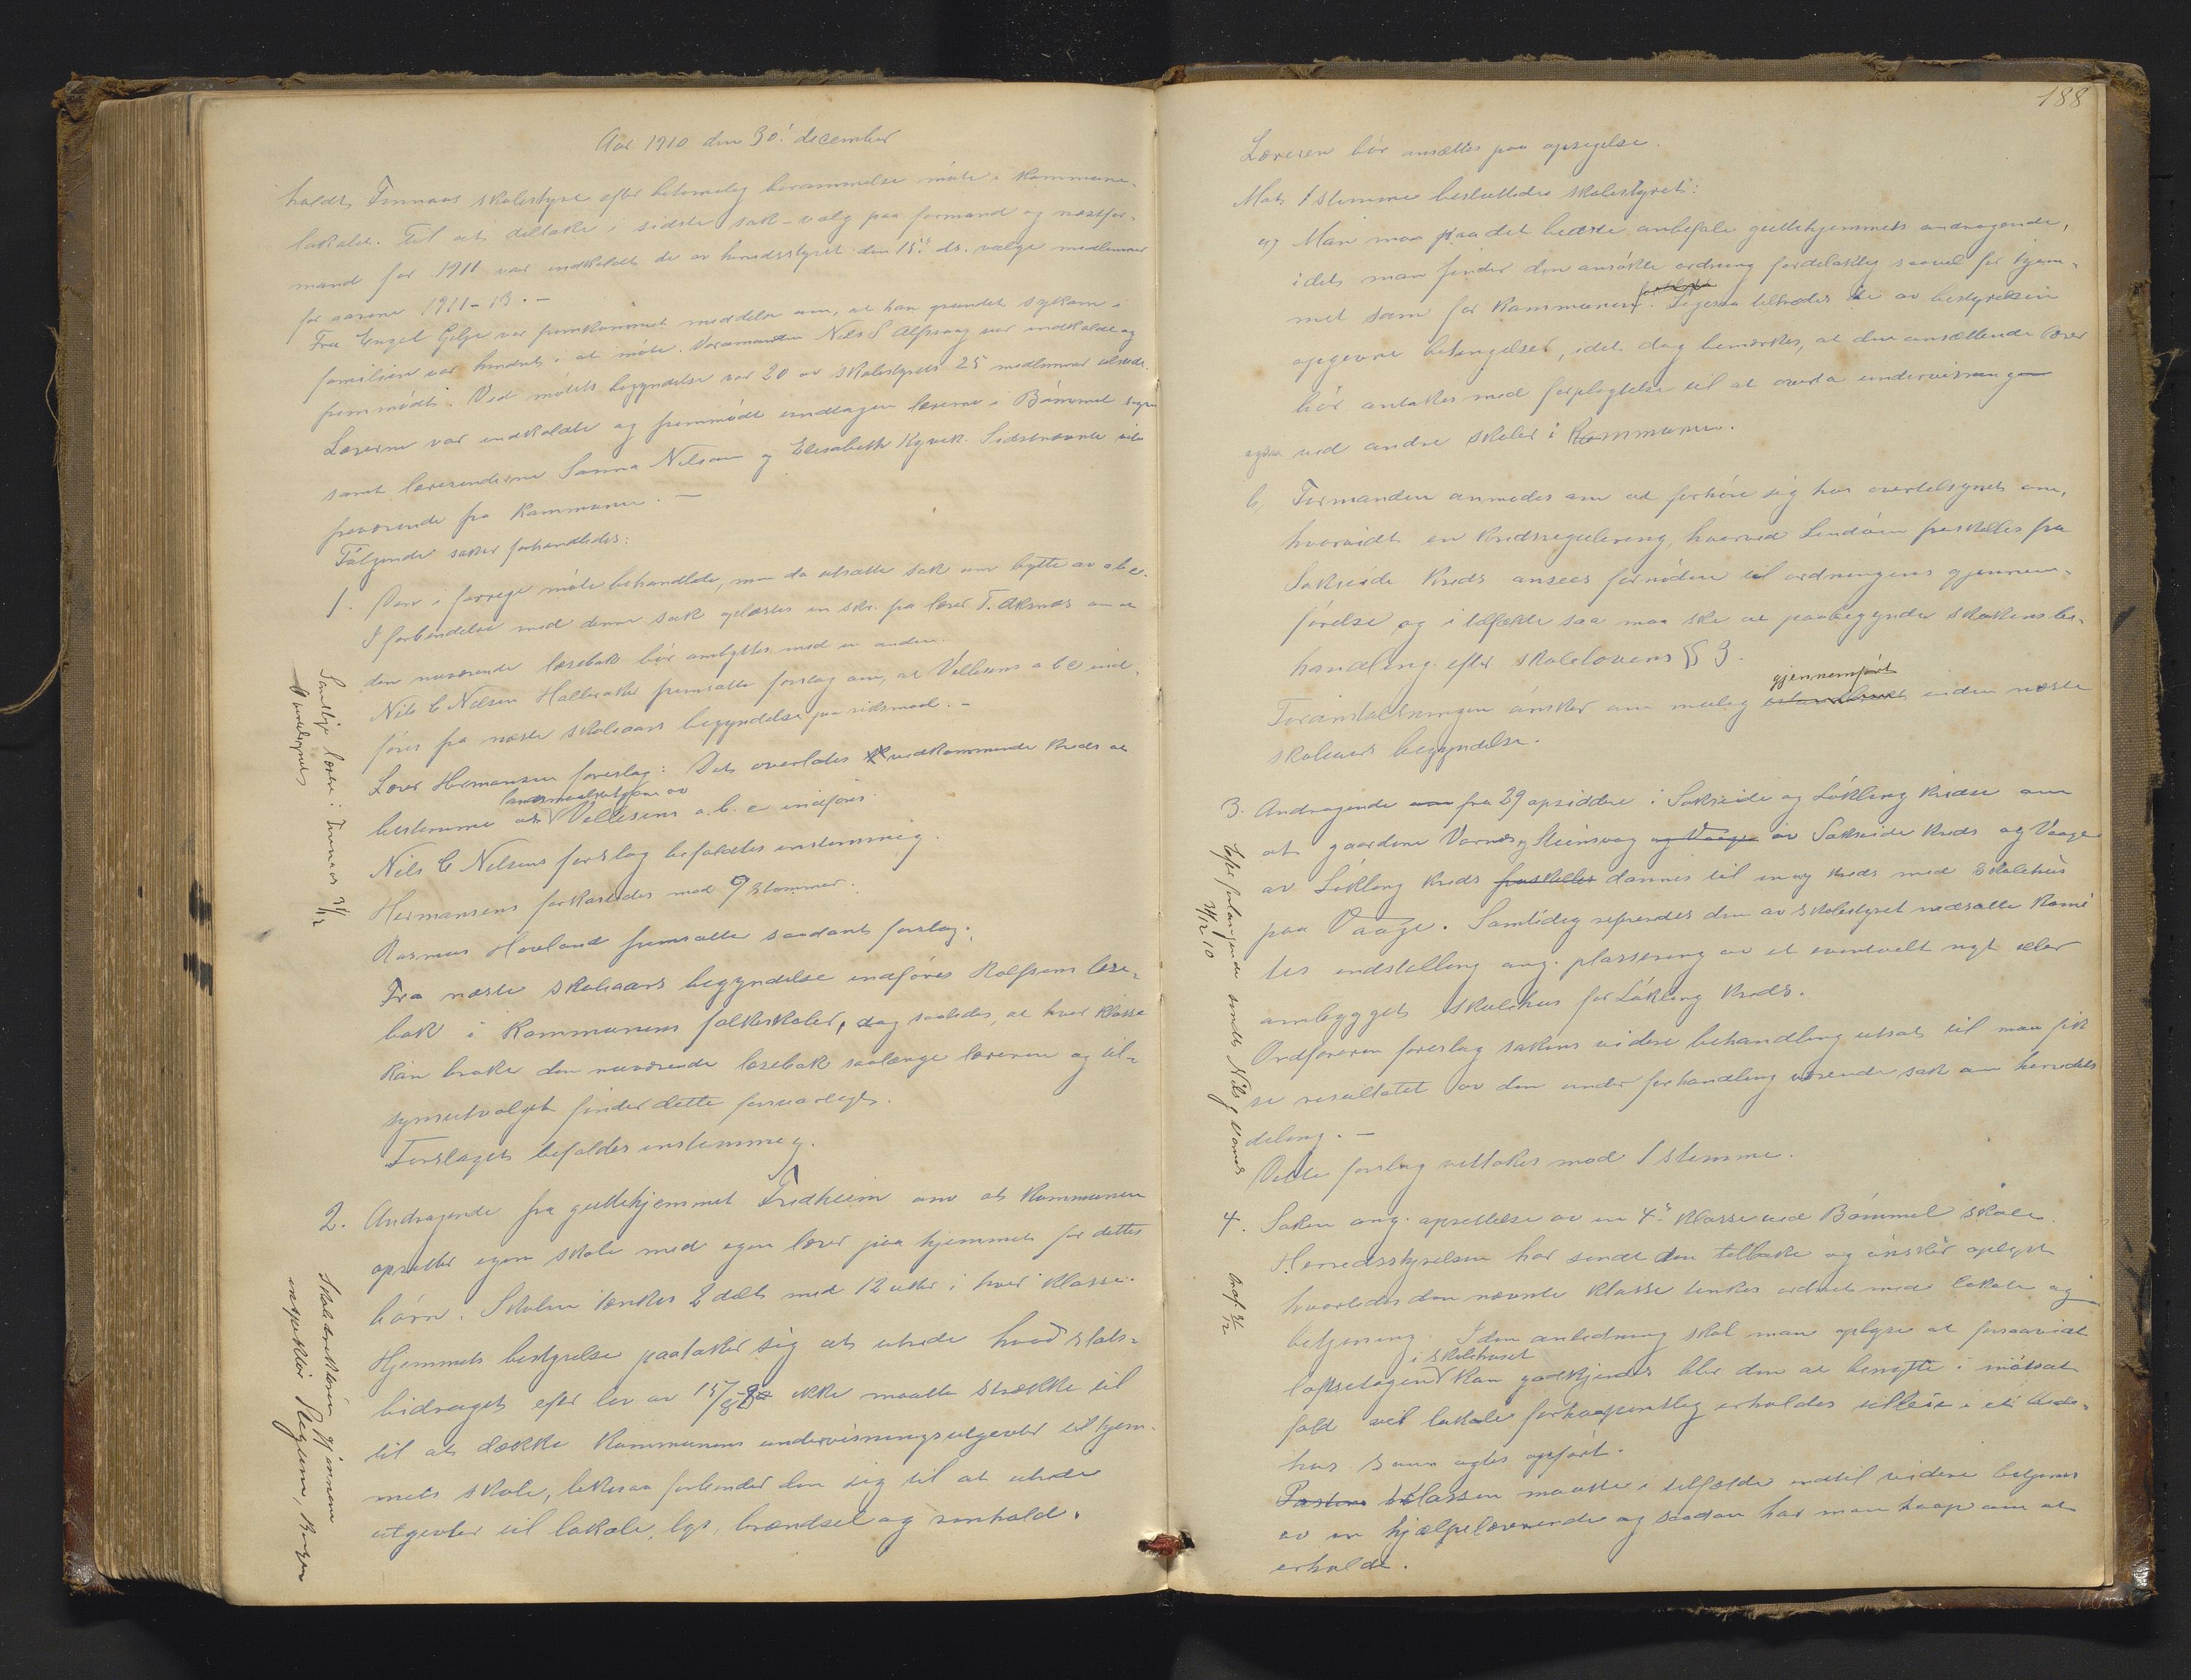 Aar 1910 den 30' december
holdt Finnaas skolestyre efter betimelig berammelse møte i kommune-
lokalet. Til at deltake i sidste sak - valg paa formand og næstfor-
mand for 1911 var indkaldt de av herredsstyret den 15de ds. valgte medlemmer
for aarene 1911-13. -
Fra Engel Gilje var fremkommet meddelelse om, at han grundet sykdom i
familien var hindret i at møte. Varamanden Nils S Alfsvaag var indkaldt og
fremmødt. Ved møtets begyndelse var 20 av skolestyrets 25 medlemmer tilstede.
Lærerne var indkaldte og fremmødte undtagen lærerne i Bømmel sogn
samt lærerinderne Sanna Nilsen og Elisabeth Kyvik. Sidstnævnte var
fraværende fra kommunen. -
Følgende saker forhandledes:
1. Den i forrige møte behandlede, men da utsatte sak om bytte av abc.
I forbindelse med denne sak oplæstes en skr. fra lærer T. Aksnes om at
den nuværende læsebok bør ombyttes med en anden.
Nils C Nilsen Hallaraker fremsatte forslag om, at Vellesens abc ind-
føres fra næste skoleaars begyndelse paa riksmaal. -
Lærer Hermansen foreslog: Det overlates vedkommende kreds at
landsmaalsutgave av
bestemme at Vellesens a.b.c indføres.
Nils C Nilsens forslag bifaldtes enstemmig.
Hermansens forkastedes med 9 stemmer.
Rasmus Hovland fremsatte saadant forslag:
Fra næste skoleaars begyndelse indføres Rolfsens læse-
bok i kommunens folkeskoler, dog saaledes, at hver klasse
kan bruke den nuværende læsebok saalænge læreren og til-
synsutvalget finder dette forsvarligt.
Forslaget bifaldes enstemmig.
2. Andragende fra guttehjemmet Fredheim om at kommunen
opretter egen skole med egen lærer paa hjemmet for dettes
børn. Skolen tænkes 2 delt med 12 uker i hver klasse.
Hjemmets bestyrelse paatager sig at utrede hvad stats-
bidraget efter lov av 15/8 ikke maatte strække til
til at dække kommunens undervisningsutgevter til hjem-
mets skole, likesaa forbinder den sig til at utrede
utgevter til lokale, lys, brændsel og renhold.
Samtlige lærere i Finnaas 31/12
Skoledirektøren gjennem
inspektør Stegum, Bergen
188
Læreren bør ansættes paa opsigelse.
Mot 1 stemme besluttedes skolestyret:
a) Man maa paa det bedste anbefale guttehjemmets andragende,
idet man finder den ansøkte ordning fordelaktig saavel for hjem-
met som for kommunen. Ligesaa tiltrædes de av bestyrelsen
opgevne betingelser, idet dog bemerkes, at den ansættende lærer
bør antakes med forpligtelse til at overta undervisningen
ogsaa ved andre skoler i kommunen.
b, Formanden anmodes om at forhøre sig hos overtilsynet om,
hvorvidt en kredsregulering, hvorved Lindøen fraskilles fra
Sakseide kreds ansees fornøden til ordningens gjennem-
førelse og i tilfælde saa maa ske at paabegynde sakens be-
handling efter skolelovens § 3.
gjennemført
Foranstaltningen ønskes om mulig inden næste
skoleaars begyndelse.
3. Andragende fra 29 opsiddere i Sakseide og Løkling kredse om
at gaardene Vornes, Steinsvag og Vaage av Sakseide kreds og Vaage
av Løkling kreds fraskilles dannes til en ny kreds med skolehus
paa Vaage. Samtidig refereredes den av skolestyret nedsatte komi-
tes indstilling ang. plassering av et eventuelt nyt eller
ombygget skolehus for Løkling kreds.
Ordføreren foreslog sakens videre behandling utsat til man fik
se resultatet av den under forhandling værende sak om herredets
deling. -
Dette forslag vedtokes mod 1 stemme.
Efter forlangende sendt Nils J Vornes
31/12 10
4. Saken ang. oprettelse av en 4de klasse ved Bømmel skole.
Herredsstyrelsen har sendt den tilbake og ønsker oplyst
hvorledes den nævnte klasse tænkes ordnet med lokale og
betjening. I den anledning skal man oplyse at forsaavidt
i skolehuset
loftsetagen kan godkjendes blir den at benytte i motsat
fald vil lokale forhaapentlig erholdes tilleie i et bede-
hus som agtes opført.
Klassen maatte i tilfælde indtil videre betjenes
av en hjælpelærerinde og saadan har man haap om at
erholde.